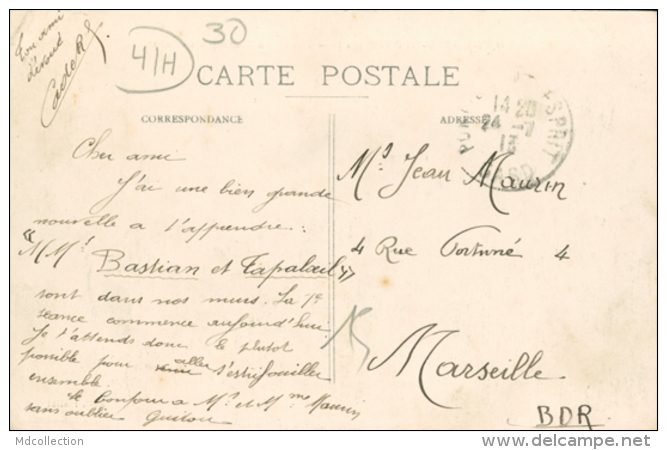 Ton ami
dévoué
41/H
30
CARTE POSTALE
CORRESPONDANCE
ADRESSE
14 20
24 -7
13
ESPRIT
GARD
Cher ami
J'ai une bien grande
nouvelle a t'apprendre :
"MM.rs Bastian et Tapalail"
sont dans nos murs. La 1e
séance commence aujourd'hui
Je t'attends donc le plutot
possible pour aller
ensemble.
Le bonjour a Mr et Mme Maurin
sans oublier Quitou
Mr Jean Maurin
4 Rue Fortuné 4
Marseille
BDR
Mdcollection
delcampe.net